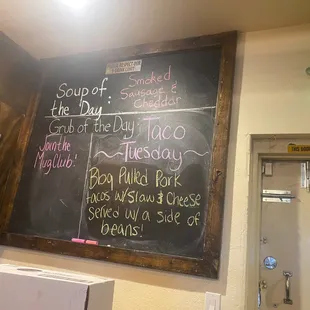 Soup of
the Day:
Smoked
Sausage &
Cheddar
Grub of the Day:
Join the
Mug Club!
Taco
~Tuesday~
Bbq Pulled Pork
tacos w/slaw & Cheese
Served w/ a side of
beans!